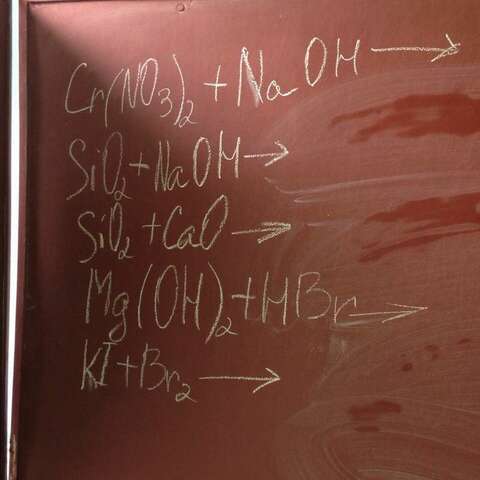 Cr(NO₃)₂ + NaOH →
SiO₂ + NaOH →
SiO₂ + CaO →
Mg(OH)₂ + HBr →
KI + Br₂ →